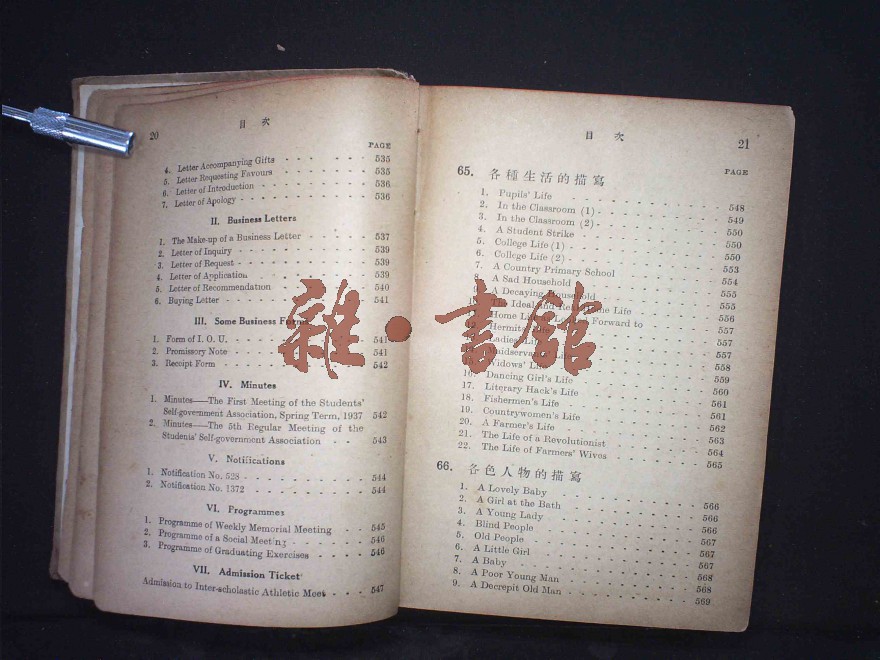 20
目 次
PAGE
4. Letter Accompanying Gifts 535
5. Letter Requesting Favours 535
6. Letter of Introduction 536
7. Letter of Apology 536
II. Business Letters
1. The Make-up of a Business Letter 537
2. Letter of Inquiry 539
3. Letter of Request 539
4. Letter of Application 539
5. Letter of Recommendation 540
6. Buying Letter 541
III. Some Business Forms
1. Form of I. O. U. 541
2. Promissory Note 541
3. Receipt Form 542
IV. Minutes
1. Minutes—The First Meeting of the Students'
Self-government Association, Spring Term, 1937 542
2. Minutes—The 5th Regular Meeting of the
Students' Self-government Association 543
V. Notifications
1. Notification No. 528 544
2. Notification No. 1372 544
VI. Programmes
1. Programme of Weekly Memorial Meeting 545
2. Programme of a Social Meeting 546
3. Programme of Graduating Exercises 546
VII. Admission Ticket
Admission to Inter-scholastic Athletic Meet 547
目 次
21
PAGE
65. 各種生活的描寫
1. Pupils' Life 548
2. In the Classroom (1) 549
3. In the Classroom (2) 550
4. A Student Strike 550
5. College Life (1) 550
6. College Life (2) 553
7. A Country Primary School 554
8. A Sad Household 555
9. A Decaying Household 555
The Ideal and Real Home Life 556
Home Life to Look Forward to 557
Hermit's Life 557
Ladies' Life 557
Maidservants' Life 558
Widows' Life 559
16. Dancing Girl's Life 560
17. Literary Hack's Life 561
18. Fishermen's Life 561
19. Countrywomen's Life 562
20. A Farmer's Life 563
21. The Life of a Revolutionist 564
22. The Life of Farmers' Wives 565
66. 各色人物的描寫
1. A Lovely Baby 566
2. A Girl at the Bath 566
3. A Young Lady 566
4. Blind People 567
5. Old People 567
6. A Little Girl 567
7. A Baby 568
8. A Poor Young Man 568
9. A Decrepit Old Man 569
雜·書館